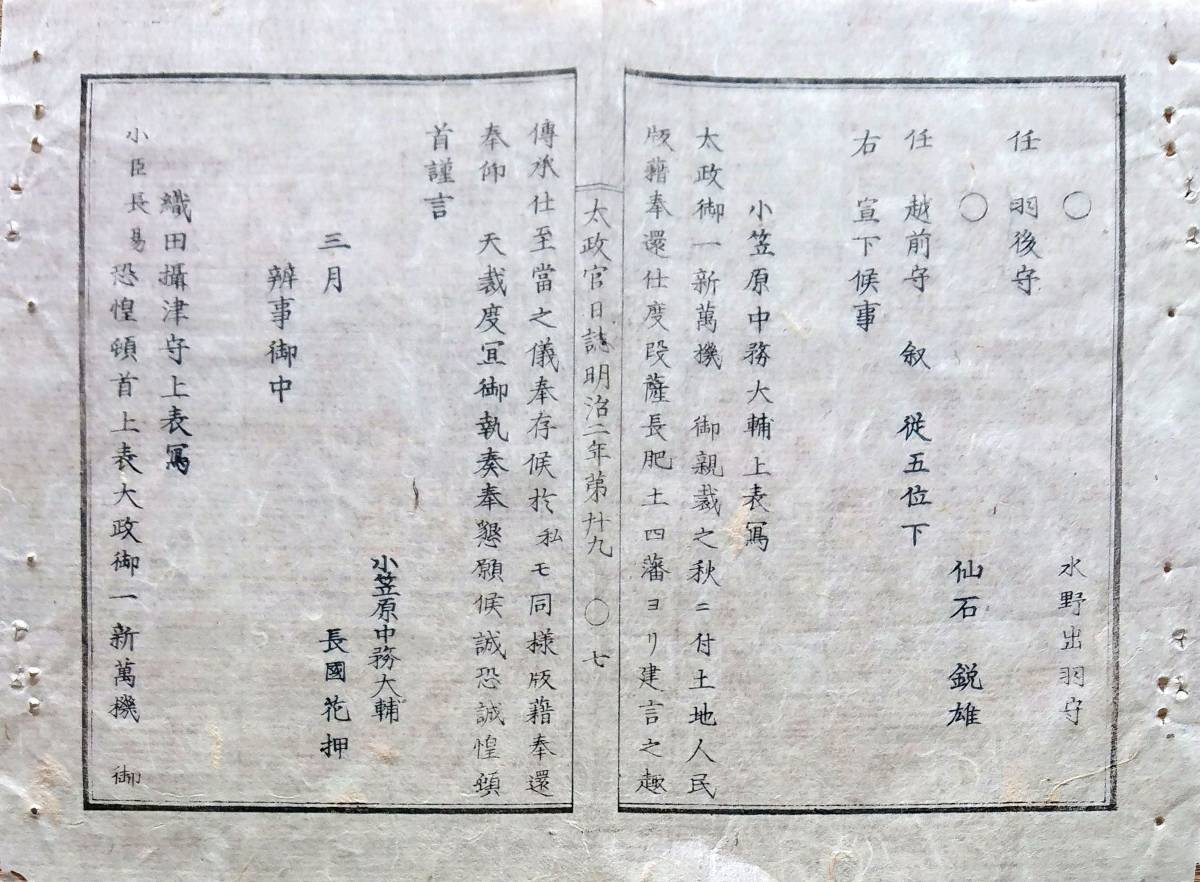 〇
水野出羽守
任 羽後守
〇
仙石 鋭雄
任 越前守 叙 従五位下
右 宣下候事
小笠原中務大輔上表寫
太政御一新萬機 御親裁之秋ニ付土地人民
版籍奉還仕度段薩長肥土四藩ヨリ建言之趣
太政官日誌明治二年第廿九 〇 七
傳承仕至當之儀奉存候於私モ同様版籍奉還
奉仰 天裁度冝御執奏奉懇願候誠恐誠惶頓
首謹言
小笠原中務大輔
三月 長國花押
辨事御中
織田攝津守上表寫
小臣長易恐惶頓首上表大政御一新萬機 御